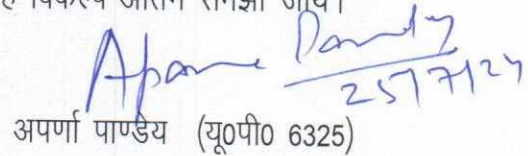 विकल्प अंतिम समझा जाये।
Aparna Pandey
25/7/24
अपर्णा पाण्डेय (यू०पी० 6325)